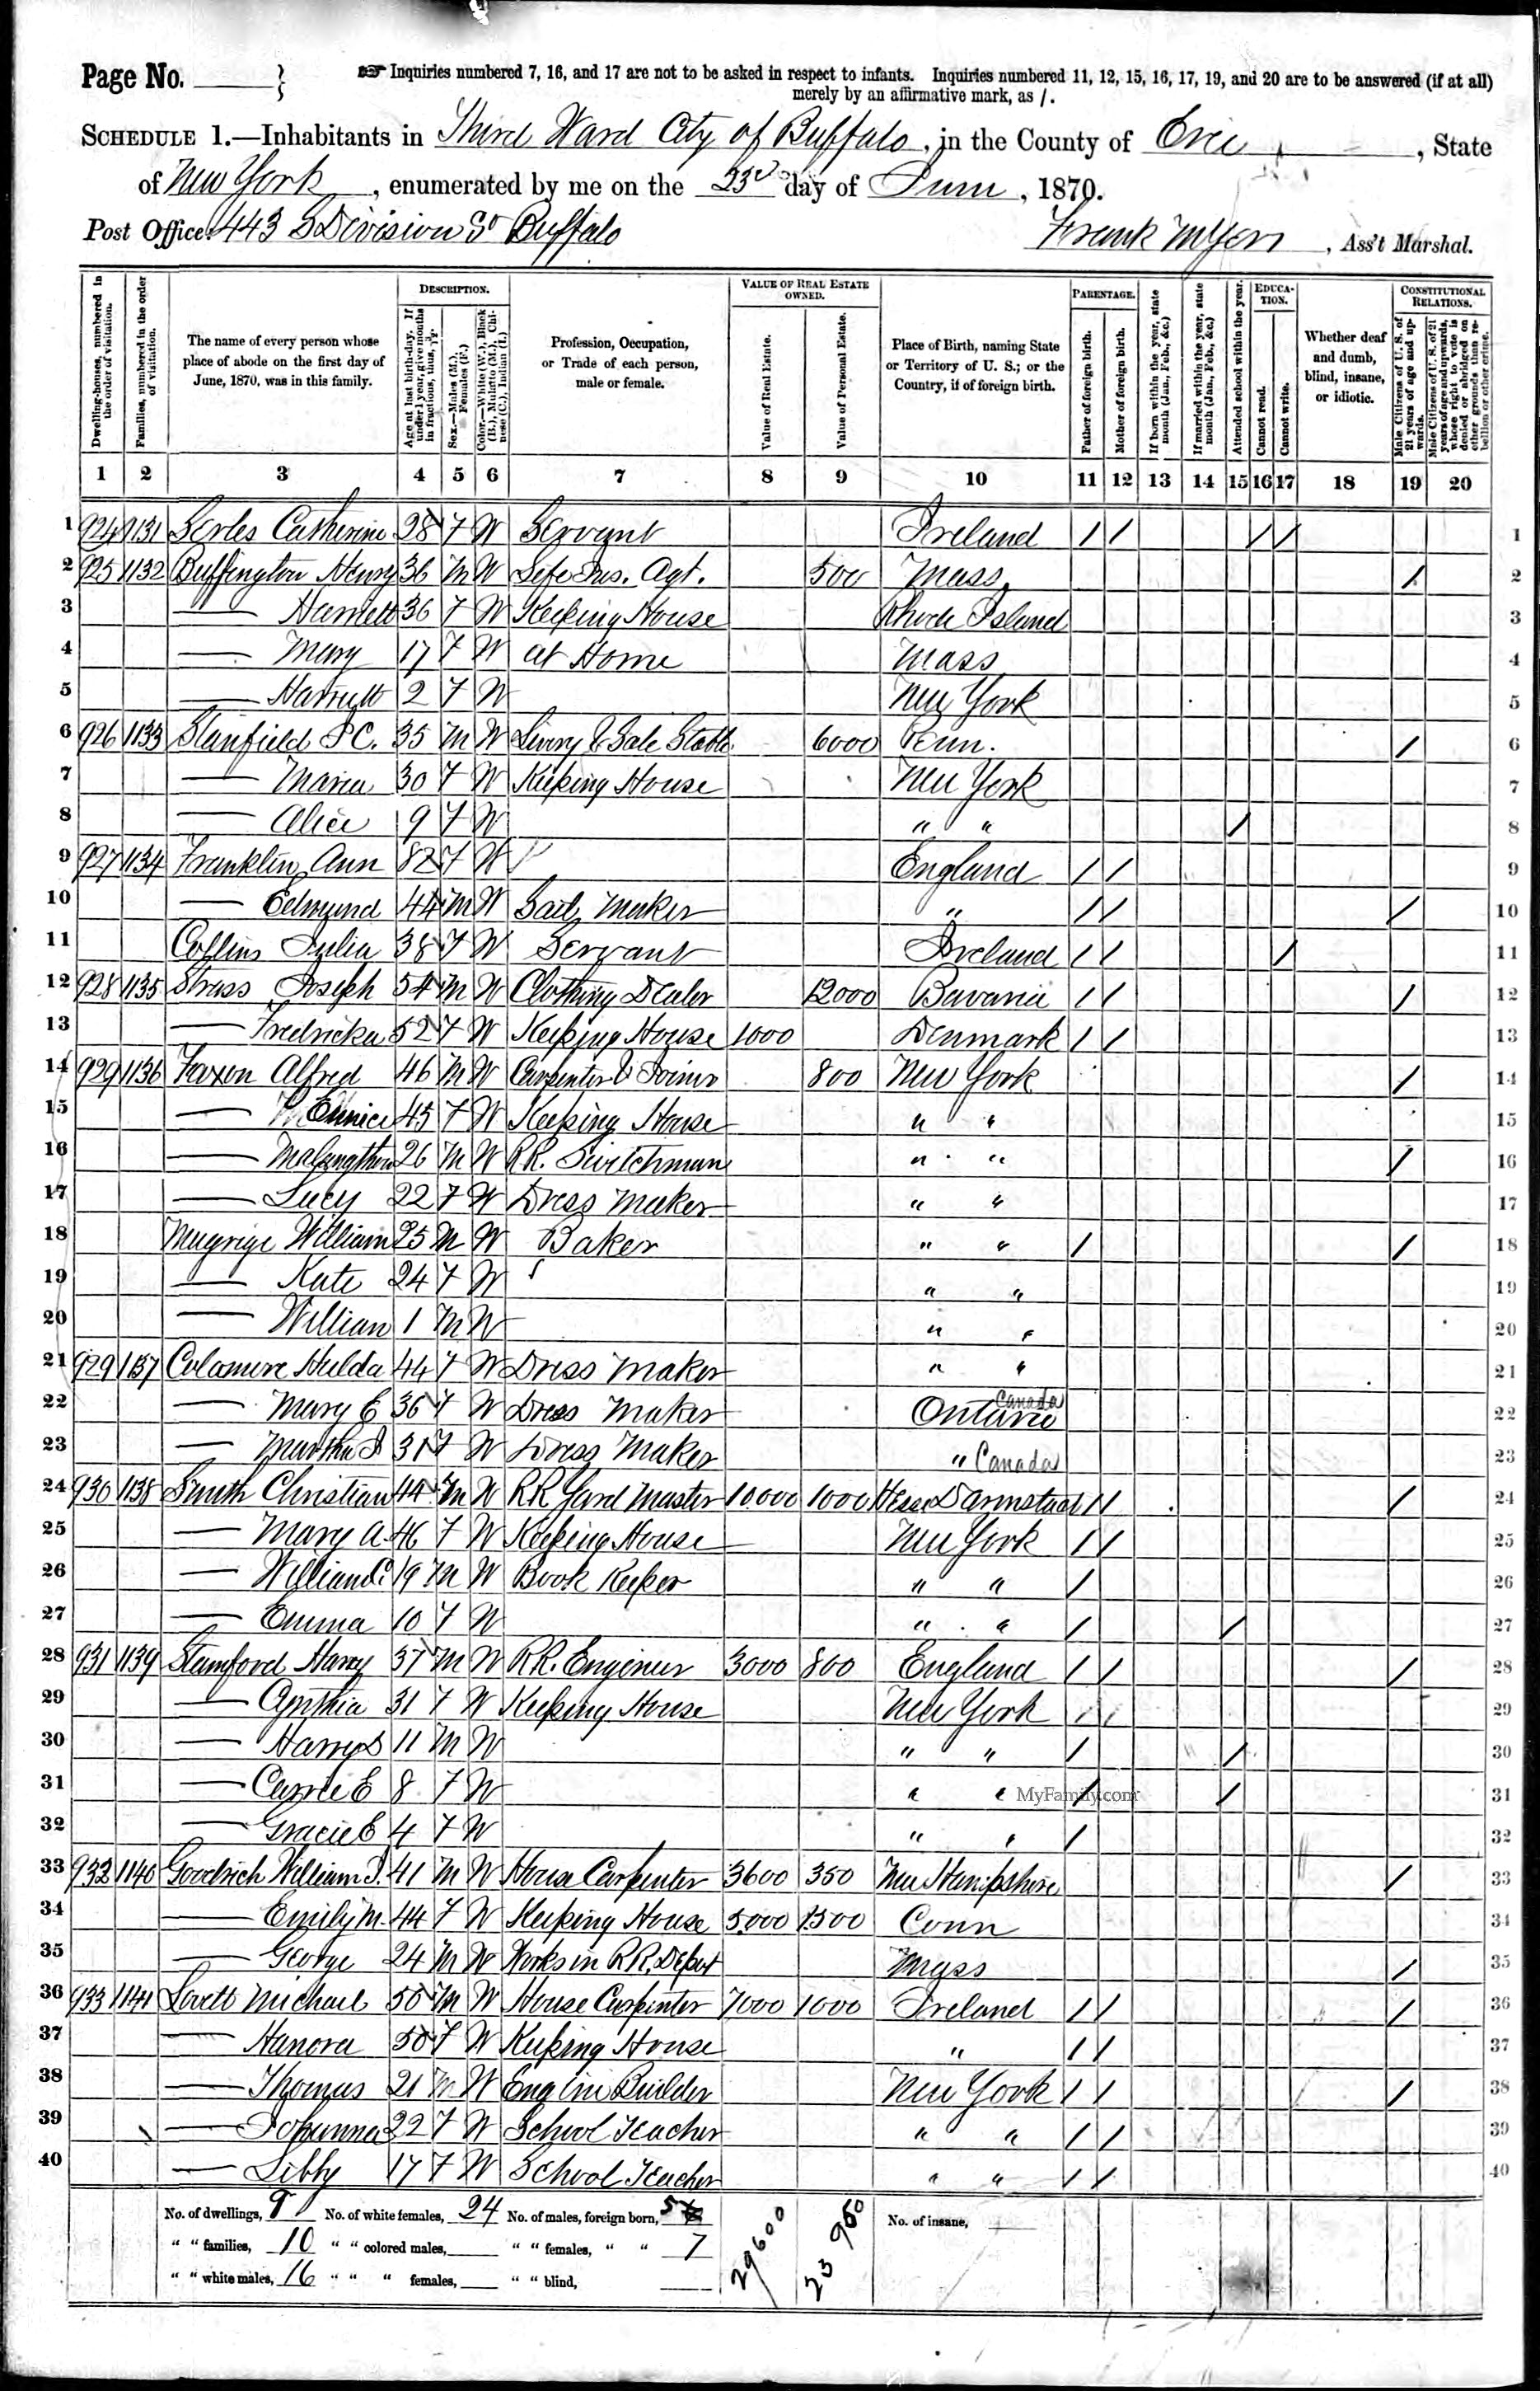 Page No. ____ }
☞ Inquiries numbered 7, 16, and 17 are not to be asked in respect to infants. Inquiries numbered 11, 12, 15, 16, 17, 19, and 20 are to be answered (if at all)
merely by an affirmative mark, as /.
SCHEDULE 1.—Inhabitants in Third Ward City of Buffalo, in the County of Erie, State
of New York, enumerated by me on the 23d day of June, 1870.
Post Office: 443 S Division St Buffalo
Frank Myers, Ass't Marshal.
Dwelling-houses, numbered in the order of visitation.
Families, numbered in the order of visitation.
The name of every person whose place of abode on the first day of June, 1870, was in this family.
DESCRIPTION.
Age at last birth-day. If under 1 year, give months in fractions, thus, 3/12.
Sex.—Males (M.), Females (F.)
Color.—White (W.), Black (B.), Mulatto (M.), Chinese (C.), Indian (I.)
Profession, Occupation, or Trade of each person, male or female.
VALUE OF REAL ESTATE OWNED.
Value of Real Estate.
Value of Personal Estate.
Place of Birth, naming State or Territory of U. S.; or the Country, if of foreign birth.
PARENTAGE.
Father of foreign birth.
Mother of foreign birth.
If born within the year, state month (Jan., Feb., &c.)
If married within the year, state month (Jan., Feb., &c.)
EDUCATION.
Attended school within the year.
Cannot read.
Cannot write.
Whether deaf and dumb, blind, insane, or idiotic.
CONSTITUTIONAL RELATIONS.
Male Citizens of U. S. of 21 years of age and upwards.
Male Citizens of U. S. of 21 years of age and upwards, whose right to vote is denied or abridged on other grounds than rebellion or other crime.
1 2 3 4 5 6 7 8 9 10 11 12 13 14 15 16 17 18 19 20
1 924 1131 Serles Catherine 28 F W Servant Ireland / / / / 1
2 925 1132 Buffington Henry 36 M W Life Ins. Agt. 500 Mass. / 2
3 — Harriett 36 F W Keeping House Rhode Island 3
4 — Mary 17 F W at Home Mass 4
5 — Harriett 2 F W New York 5
6 926 1133 Stanfield P C. 35 M W Livery & Sale Stable 6000 Penn. / 6
7 — Maria 30 F W Keeping House New York 7
8 — Alice 9 F W " " / 8
9 927 1134 Franklin Ann 82 F W England / / 9
10 — Edmund 44 M W Sail Maker " / / / 10
11 Collins Julia 38 F W Servant Ireland / / / 11
12 928 1135 Strass Joseph 54 M W Clothing Dealer 12000 Bavaria / / / 12
13 — Fredricka 52 F W Keeping House 1000 Denmark / / 13
14 929 1136 Faxon Alfred 46 M W Carpenter & Joiner 800 New York / 14
15 — Eunice 45 F W Keeping House " " 15
16 — 26 M W RR. Switchman " " / 16
17 — Lucy 22 F W Dress Maker " " 17
18 William 25 M W Baker " " / / 18
19 — Kate 24 F W " " 19
20 — William 1 M W " " 20
21 929 1137 Hulda 44 F W Dress Maker " " 21
22 — Mary E 36 F W Dress Maker Ontario Canada 22
23 — Martha 31 F W Dress Maker " Canada 23
24 930 1138 Smith Christian 44 M W RR Yard Master 10000 1000 Hesse Darmstadt / / / 24
25 — Mary A. 46 F W Keeping House New York / / 25
26 — William C. 19 M W Book Keeper " " / 26
27 — Emma 10 F W " " / / 27
28 931 1139 Stamford Harry 37 M W RR. Engineer 3000 800 England / / / 28
29 — Cynthia 31 F W Keeping House New York / / 29
30 — Harry S 11 M W " " / / 30
31 — Carrie E 8 F W " " / / 31
MyFamily.com
32 — Gracie E 4 F W " " / 32
33 932 1140 Goodrich William J. 41 M W House Carpenter 3600 350 New Hampshire / 33
34 — Emily M. 44 F W Keeping House 5000 1500 Conn 34
35 — George 24 M W Works in R R. Depot Mass / 35
36 933 1141 Lovett Michael 50 M W House Carpenter 7000 1000 Ireland / / / 36
37 — Hanora 50 F W Keeping House " / / 37
38 — Thomas 21 M W Engine Builder New York / / / 38
39 — Johanna 22 F W School Teacher " " / / 39
40 — Libby 17 F W School Teacher " " / / 40
No. of dwellings, 9 No. of white females, 24 No. of males, foreign born, 5 29600 23950 No. of insane, ____
" " families, 10 " " colored males, ____ " " females, " " 7
" " white males, 16 " " " females, ____ " " blind, ____